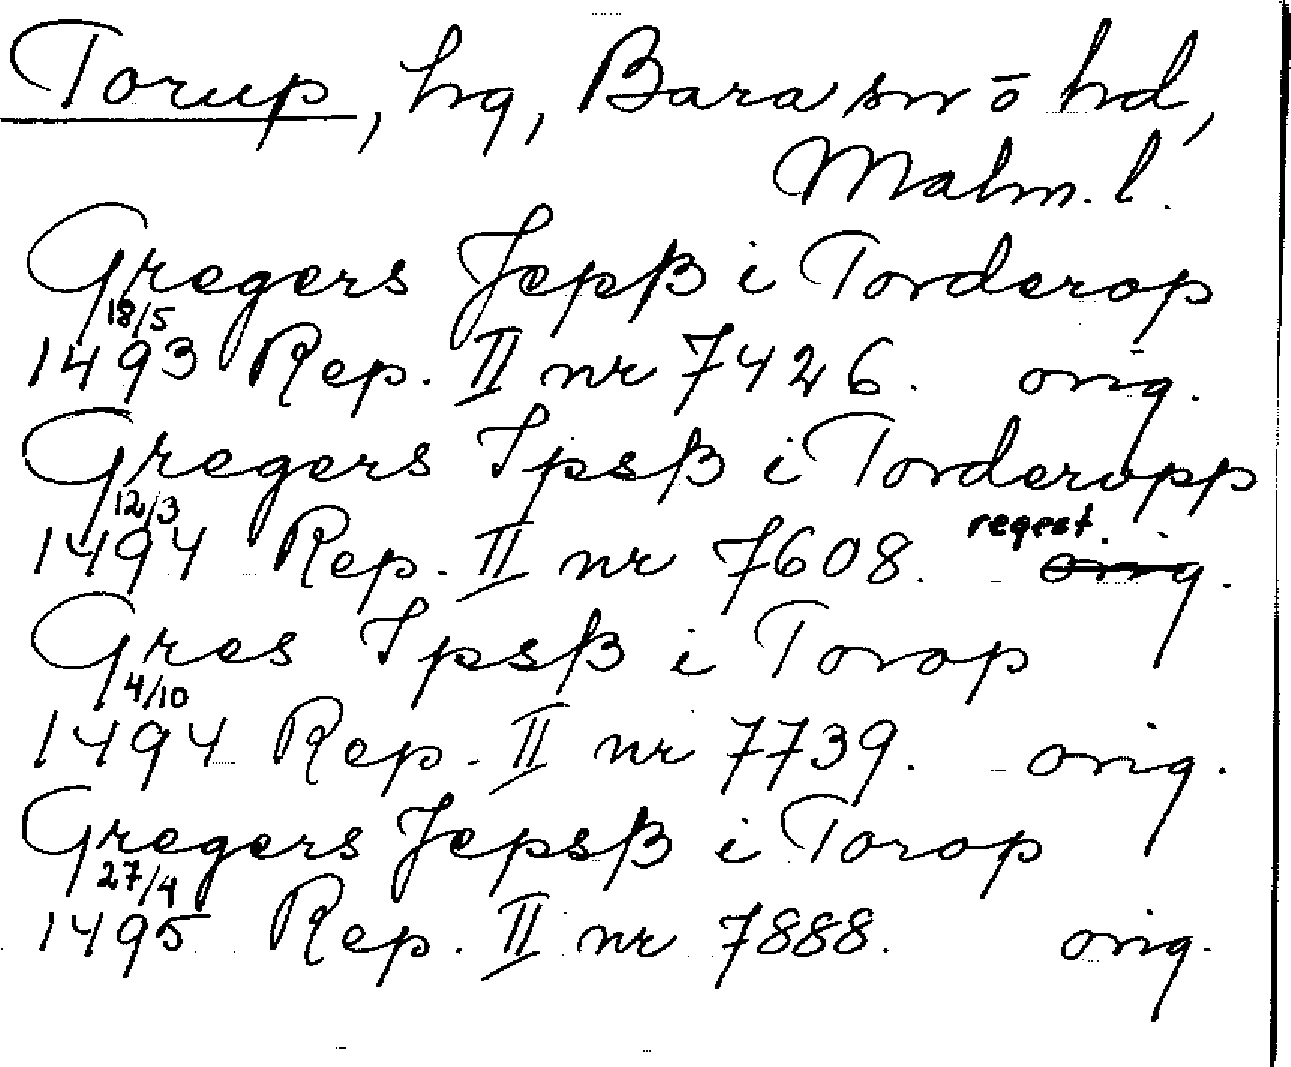 Torup, hg, Bara sn o hd,
Malm. l.
Gregers Jepß i Torderop
18/5
1493 Rep. II nr 7426. orig.
Gregers Ipsß i Torderupp
12/3
1494 Rep. II nr 7608. regest. orig.
Gres Ipsß i Torop
4/10
1494 Rep. II nr 7739. orig.
Gregers Jepsß i Torop
27/4
1495 Rep. II nr 7888. orig.